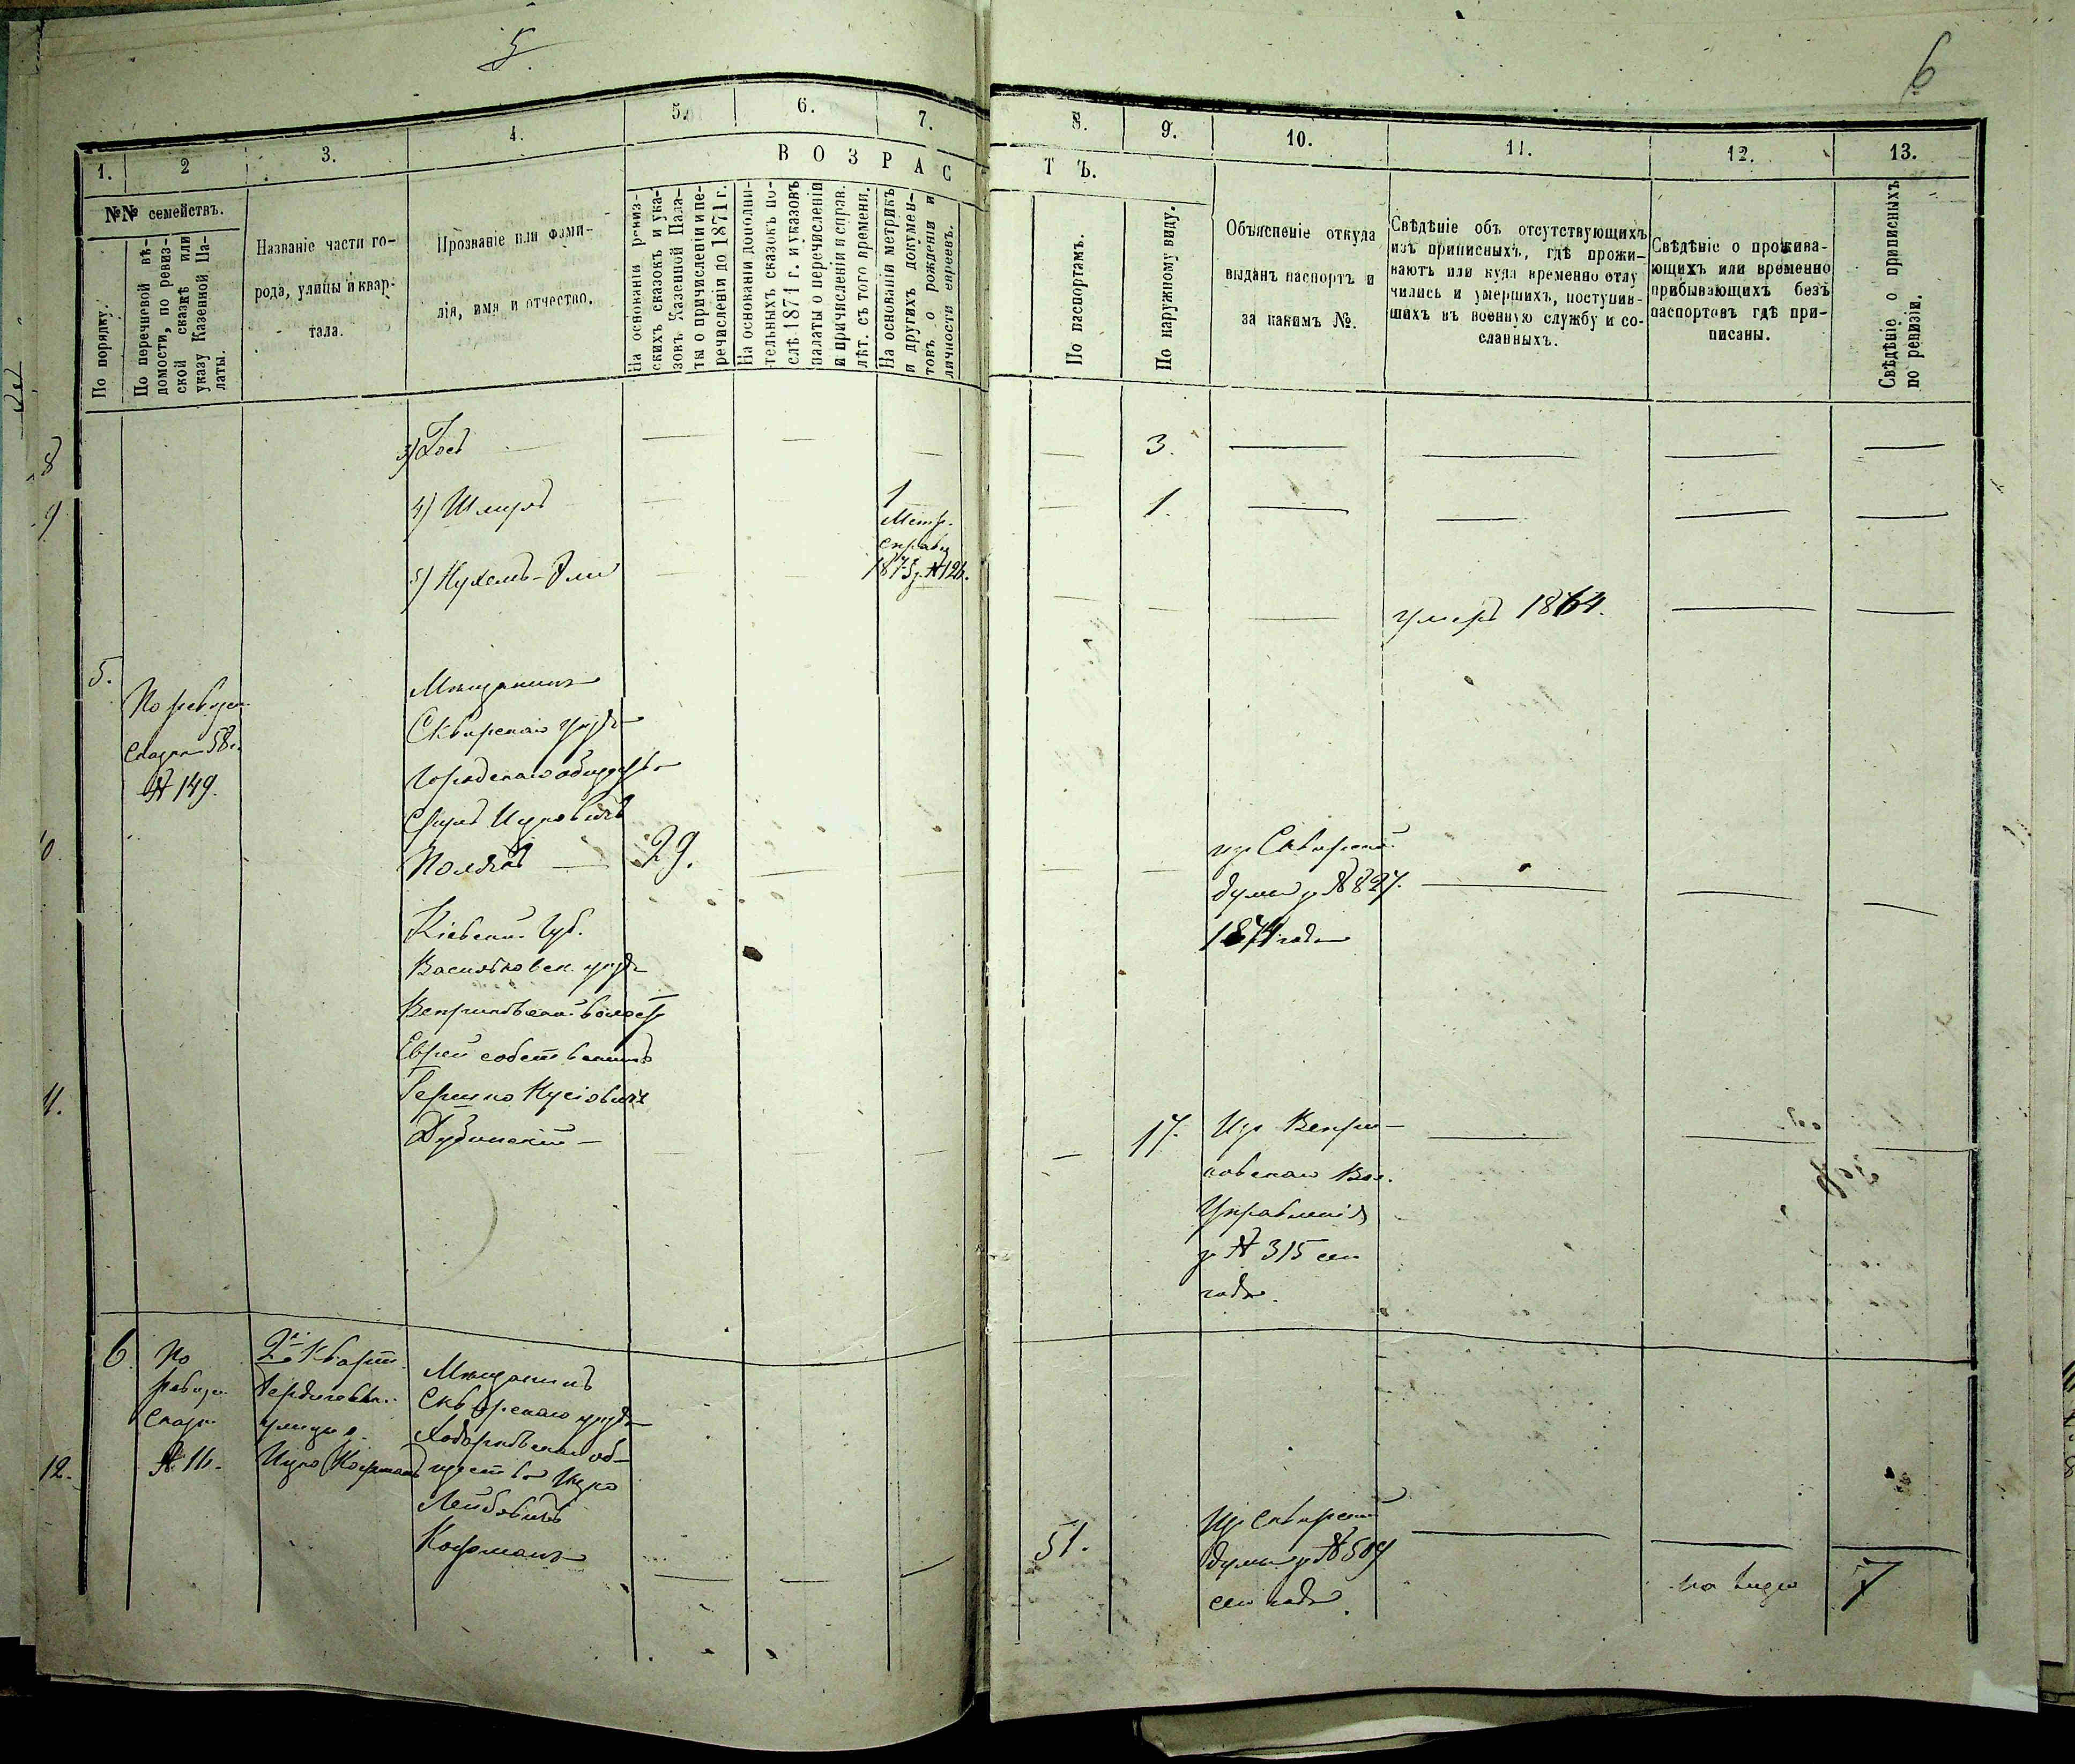 5
6
1.
2
3.
4.
5.
6.
7.
8.
9.
10.
11.
12.
13.
ВОЗРАС
ТЪ.
№№ семействъ.
По порядку.
По перечневой вѣ-
домости, по ревиз-
ской сказкѣ или
указу Казенной Па-
латы.
Названіе части го-
рода, улицы и квар-
тала.
Прозваніе или фами-
лія, имя и отчество.
На основаніи ревиз-
скихъ сказокъ и ука-
зовъ Казенной Пала-
ты о причисленіи и пе-
речисленіи до 1871 г.
На основаніи дополни-
тельныхъ сказокъ по-
слѣ 1871 г. и указовъ
палаты о перечисленіи
и причисленіи и справ.
лѣт. съ того времени.
На основаніи метрикъ
и другихъ докумен-
товъ о рожденіи и
личности евреевъ.
По паспортамъ.
По наружному виду.
Объясненіе откуда
выданъ паспортъ и
за какимъ №.
Свѣдѣніе объ отсутствующихъ
изъ приписныхъ, гдѣ прожи-
ваютъ или куда временно отлу
чились и умершихъ, поступив-
шихъ въ военную службу и со-
сланныхъ.
Свѣдѣніе о прожива-
ющихъ или временно
прибывающихъ безъ
паспортовъ гдѣ при-
писаны.
Свѣдѣніе о приписныхъ
по ревизіи.
8
3)
3.
9
4) Шмуль
1
Метр.
справка
1875 г. № 126.
1.
5) Нухемъ-Эли
умеръ 1864.
5.
По ревиз.
Сказкѣ 58 г.
№ 149.
Мѣщанинъ
Сквирскаго уѣзда
Городскаго общества
Ицковичъ
Полякъ
29.
из Сквирской
думы з № 827.
1874 года
Кіевской Губ.
Васильковск. уѣзда
Веприковской волости
Еврей собственникъ
11.
Гершко Нусіовичъ
Дубинскій
17.
Из Вепри-
ковскаго Вол.
Управленія
з № 315 сего
года.
6.
По
ревиз.
Сказк.
№ 11.
2й Кварт.
Бердичевск.
улица.
Ицко Кофманъ
12.
Мѣщанинъ
Сквирскаго уѣзда
Ходорковскаго об-
щества Ицко
Лейбовичъ
Кофманъ
51.
Из Сквирской
думы з № 509
сего года.
на лицо
7